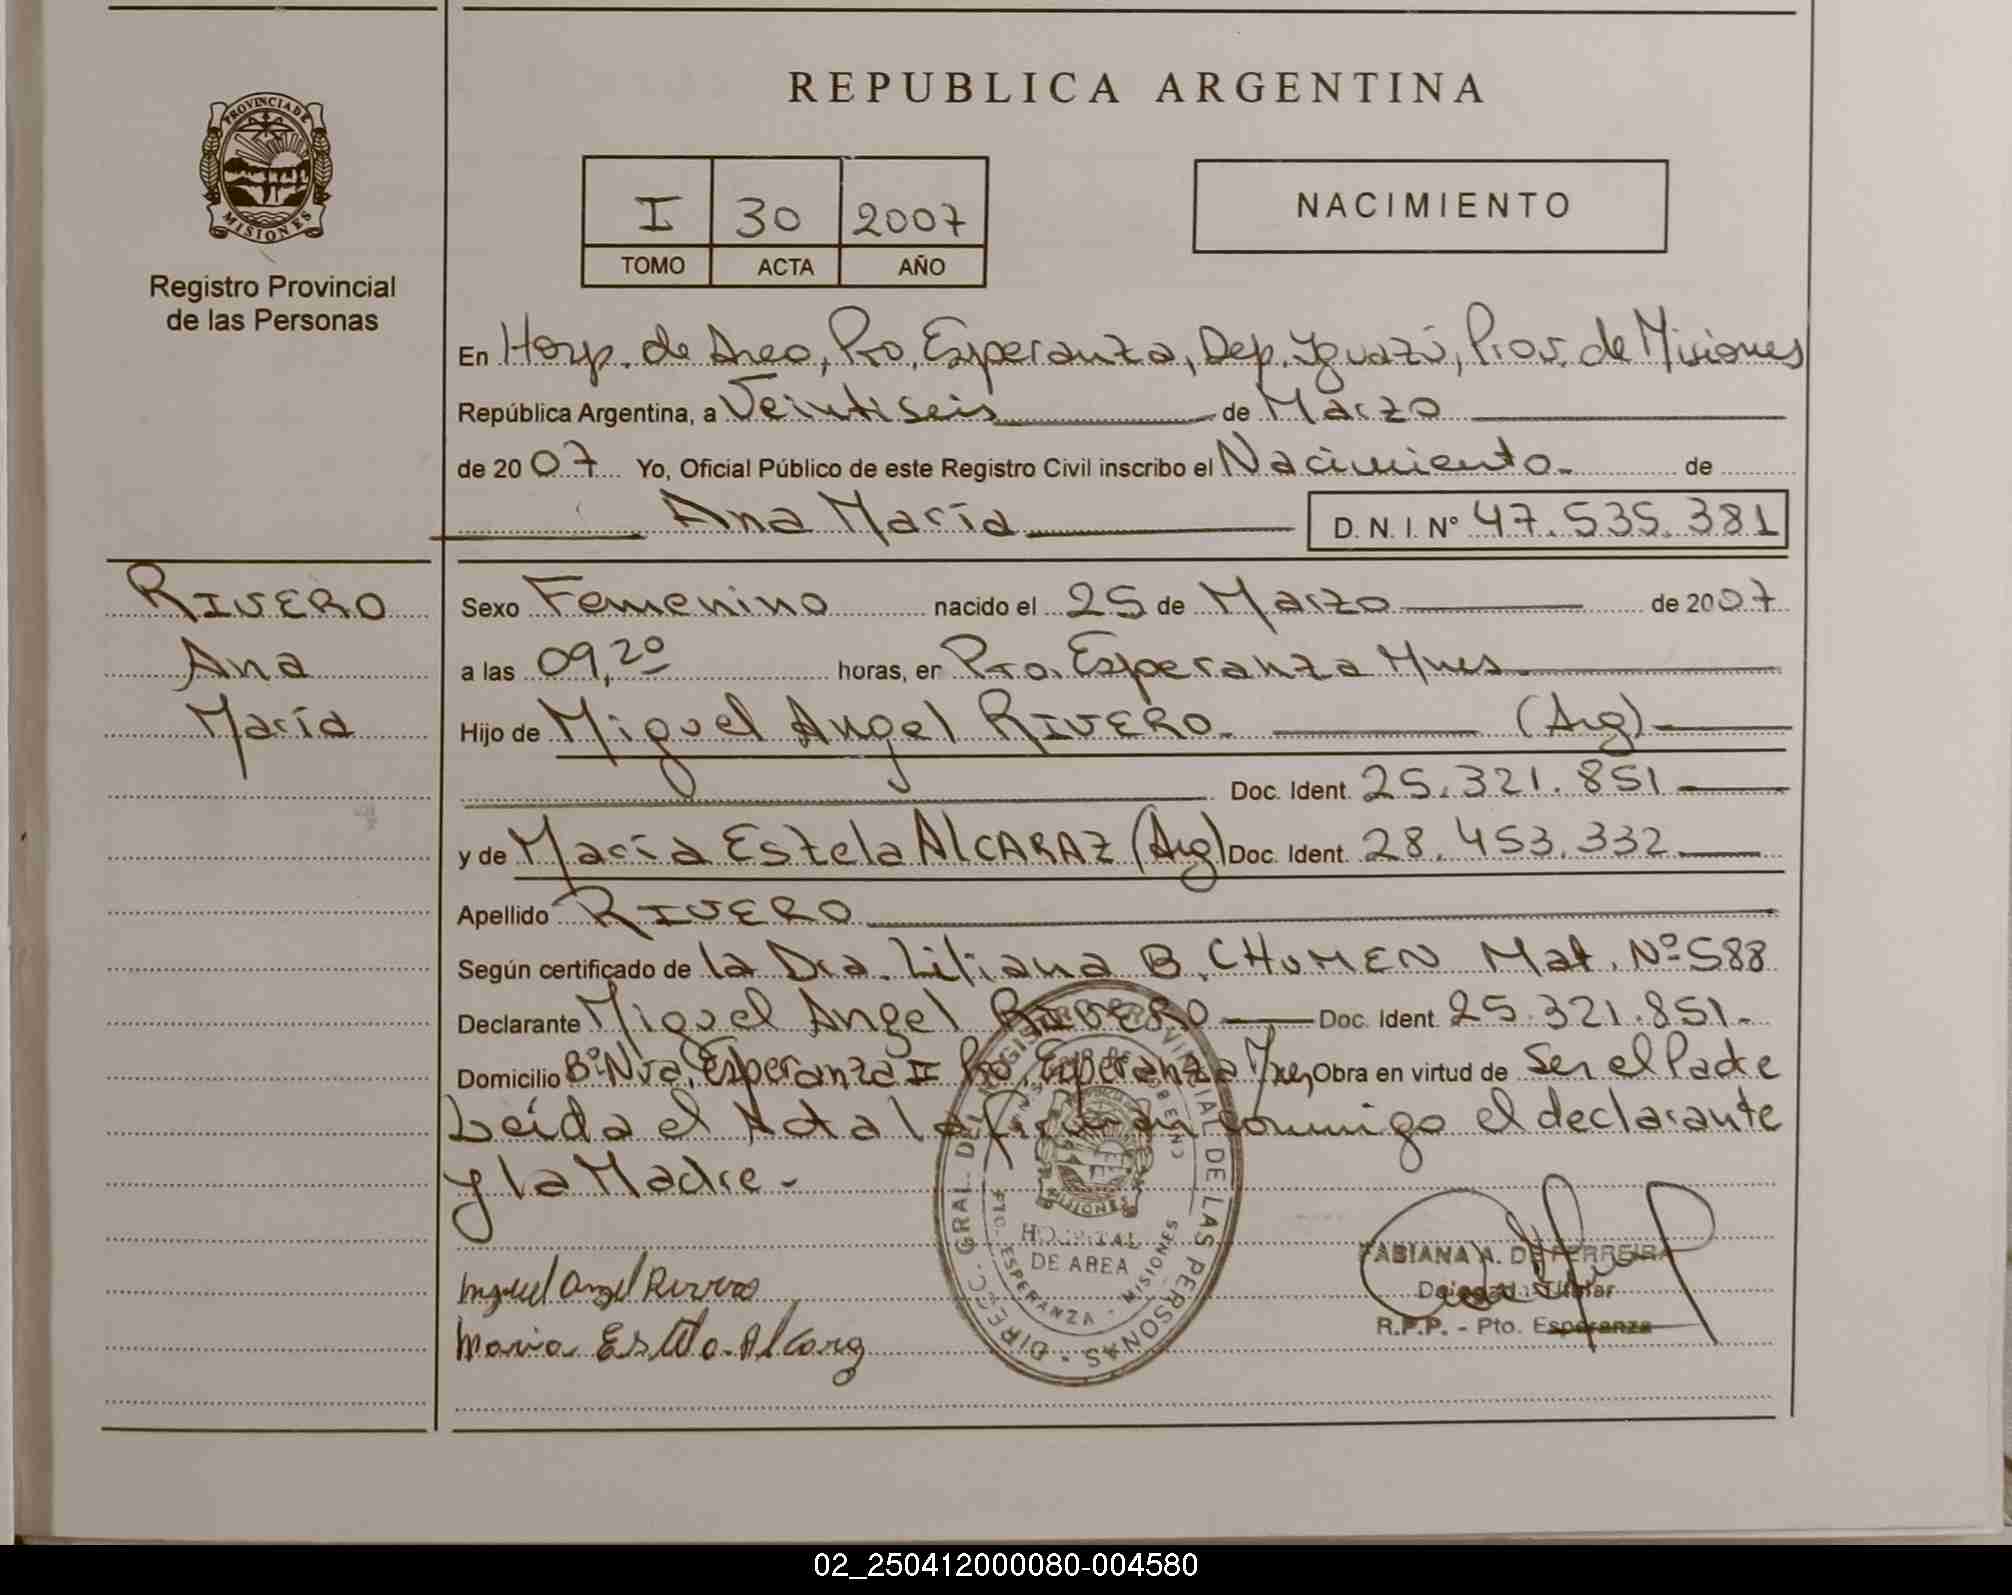 REPUBLICA ARGENTINA
PROVINCIA DE
MISIONES
Registro Provincial
de las Personas
I 30 2007
TOMO ACTA AÑO
NACIMIENTO
En Hosp. de Area, Pto. Esperanza, Dep. Iguazú, Prov. de Misiones
República Argentina, a Veintiseis de Marzo
de 2007 Yo, Oficial Público de este Registro Civil inscribo el Nacimiento. de
Ana María D. N. I. N° 47.535.381
RIVERO
Ana
María
Sexo Femenino nacido el 25 de Marzo de 2007
a las 09,20 horas, en Pto. Esperanza Mnes.
Hijo de Miguel Angel RIVERO. (Arg)
Doc. Ident. 25.321.851
y de María Estela ALCARAZ (Arg) Doc. Ident. 28.453.332
Apellido RIVERO
Según certificado de la Dra. Liliana B. CHUMEN Mat. Nº 588
Declarante Miguel Angel RIVERO Doc. Ident. 25.321.851.-
Domicilio Bº Nva. Esperanza II Pto. Esperanza Mnes, Obra en virtud de Ser el Padre
Leída el Acta la firman conmigo el declarante
y la Madre.-
DIRECC. GRAL. DEL REGISTRO PROVINCIAL DE LAS PERSONAS
MISIONES
HOSPITAL
DE AREA
PTO. ESPERANZA - MISIONES
Miguel Angel Rivero
Maria Estela Alcaraz
FABIANA A. DE FERREIRA
Delegada Titular
R.P.P. - Pto. Esperanza
02_250412000080-004580